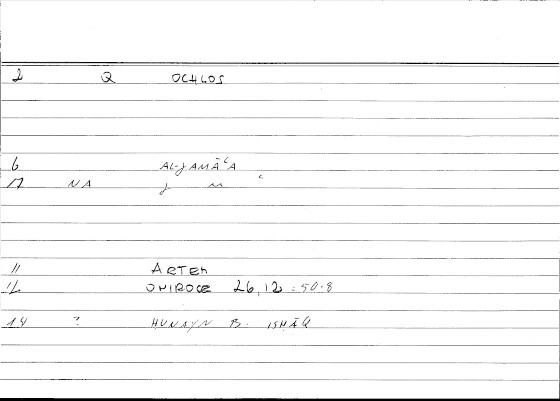 2 Q OCHLOS
6 AL-JAMĀʿA
17 NA j m ʿ
11 ARTEM
12 ONIROCR 26,12 = 50.8
14 ? HUNAYN B. ISHĀQ